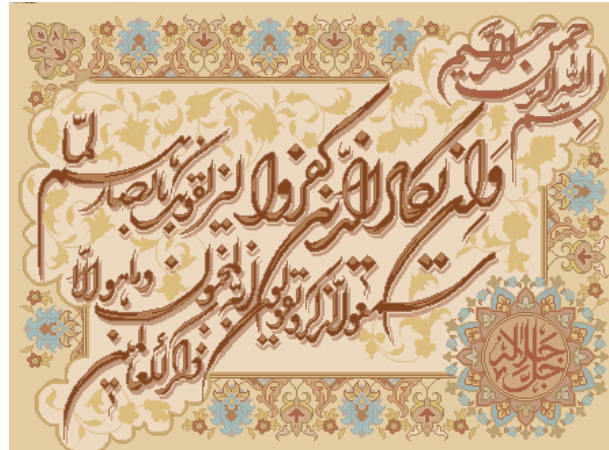 بسم الله الرحمن الرحیم
وان یکاد الذین کفروا لیزلقونک بابصارهم لما
سمعوا الذکر و یقولون انه لمجنون وما هو الا
ذکر للعالمین
جل جلاله